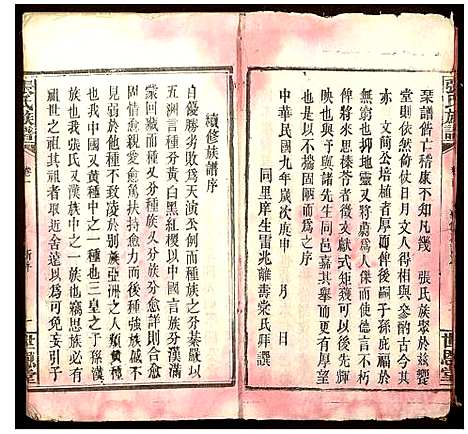 張氏族譜
栞譜舊亡稽康不知凡幾 張氏族聚於兹饗
堂則巳依然倚仗日月文人得與參酌古今其
亦 文簡公培植者厚而俾爾子孫庇福於
無窮也抑地靈又將蔚爲人傑而使德言不朽
俾將來思榛苓者文獻足式矩矱可以後先輝
映予與輿諸先生同邑嘉其事而更有厚望
也是以不揣固陋而爲之序
中華民國九年歲次庚申 月 日
同里庠生雷兆離壽棠氏拜譔
世恩堂
續修族譜序
自優勝劣敗爲天演公例而種族之分綦嚴以
五洲言種分黃白黑紅椶以中國言族分漢滿
蒙回藏而種又分種族又分族分愈詳則合予
羣者則親愛愈篤扶持愈力而自相
見弱於他種不致凌於別族亞洲之人類黃種
也我中國又黃種中之一種也三皇之子孫漢
族也我張氏又漢族中之一族也竊思族必有
祖世之祖其祖者取近舍遠以爲可免妄引子
張氏族譜
卷一
新序
一
世恩堂